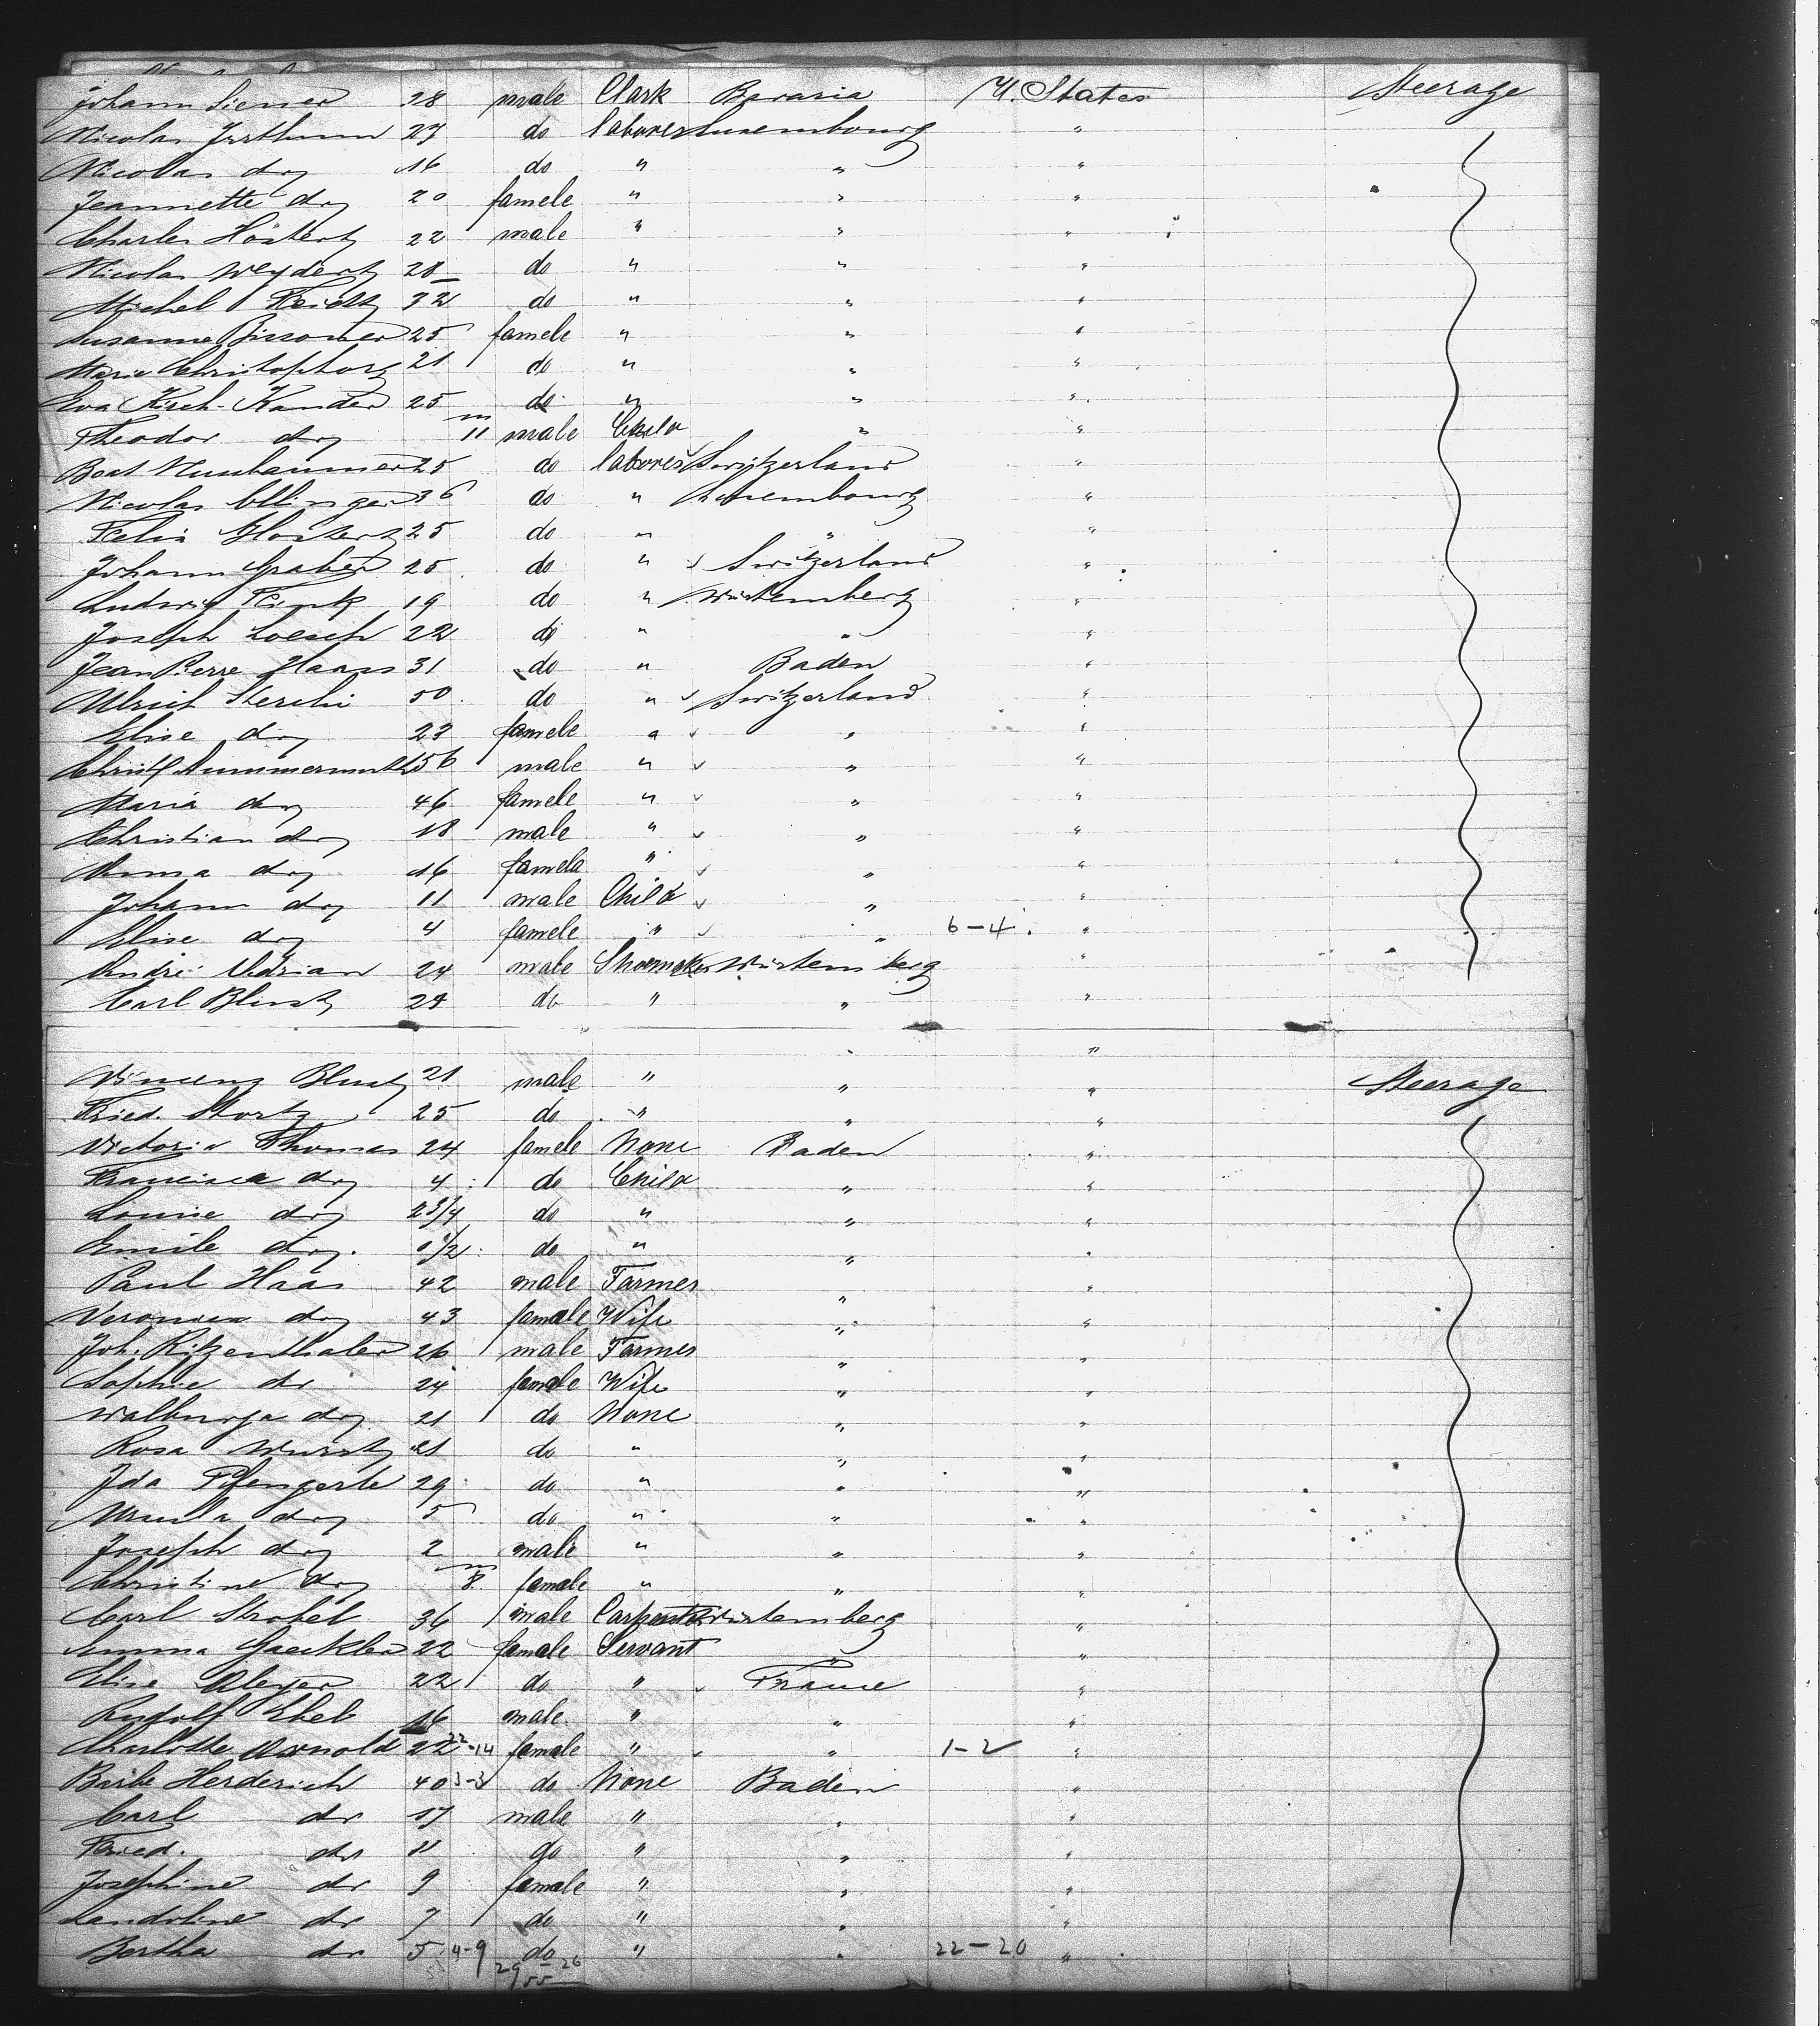 Johann Siener 28 male Clark Bavaria U. States Steerage
Nicolas 27 do laborer Luxembourg "
Nicolas do 16 do " " "
Jeannette do 20 famele " " "
Charles Hostert 22 male " " "
Nicolas Weydert 28 do " " "
Michel Feidt 32 do " " "
Susanne 25 famele " " "
Marie Christophory 21 do " " "
Eva Kisch-Kander 25 do " " "
Theodor do 11 m male Child " "
Beat Nussbaumer 25 do laborer Switzerland "
Nicolas Ellinger 36 do " Luxembourg "
Felix Hostert 25 do " " "
Johann Graber 25 do " Switzerland "
Ludwig Fink 19 do " Würtemberg "
Joseph Loesch 22 do " " "
Jean Pierre Haas 31 do " Baden "
Ulrich Sterchi 50 do " Switzerland "
Elise do 23 famele " " "
Christ Aummermuth 56 male " " "
Maria do 46 famele " " "
Christian do 18 male " " "
Anna do 16 famela " " "
Johann do 11 male Child " "
Elise do 4 famele " " 6-4 "
André Adrian 24 male Shoemaker Würtemberg "
Carl Blust 24 do " " "
" "
Vincenz Blust 21 male " " " Steerage
Fried. Stortz 25 do " " "
Victoria Thomas 24 famele None Baden "
Francisca do 4 do Child " "
Louise do 2 3/4 do " " "
Emile do. 0 1/2 do " " "
Paul Haas 42 male Farmer " "
Veronica do 43 female Wife " "
Joh. Ritzenthaler 26 male Farmer " "
Sophie do 24 female Wife " "
Walburga do 21 do None " "
Rosa Wurst 21 do " " "
Ida Pfengerle 29 do " " "
Ursula do 5 do " " "
Joseph do 2 male " " "
Christine do 8 m female " " "
Carl Strobel 36 male Carpenter Würtemberg "
Emma Gaeckler 22 female Servant " "
Elise Aleyer 22 do " France "
Rudolf Ebel 16 male " " "
Charlotte Arnold 22 22-14 female " " 1-2 "
Barbe Herderich 40 3-3 do None Baden "
Carl do 17 male " " "
Fried. do 11 do " " "
Josephine do 9 female " " "
Landoline do 7 do " " "
Bertha do 5 4-9 do " " 22-20 "
29 26
55